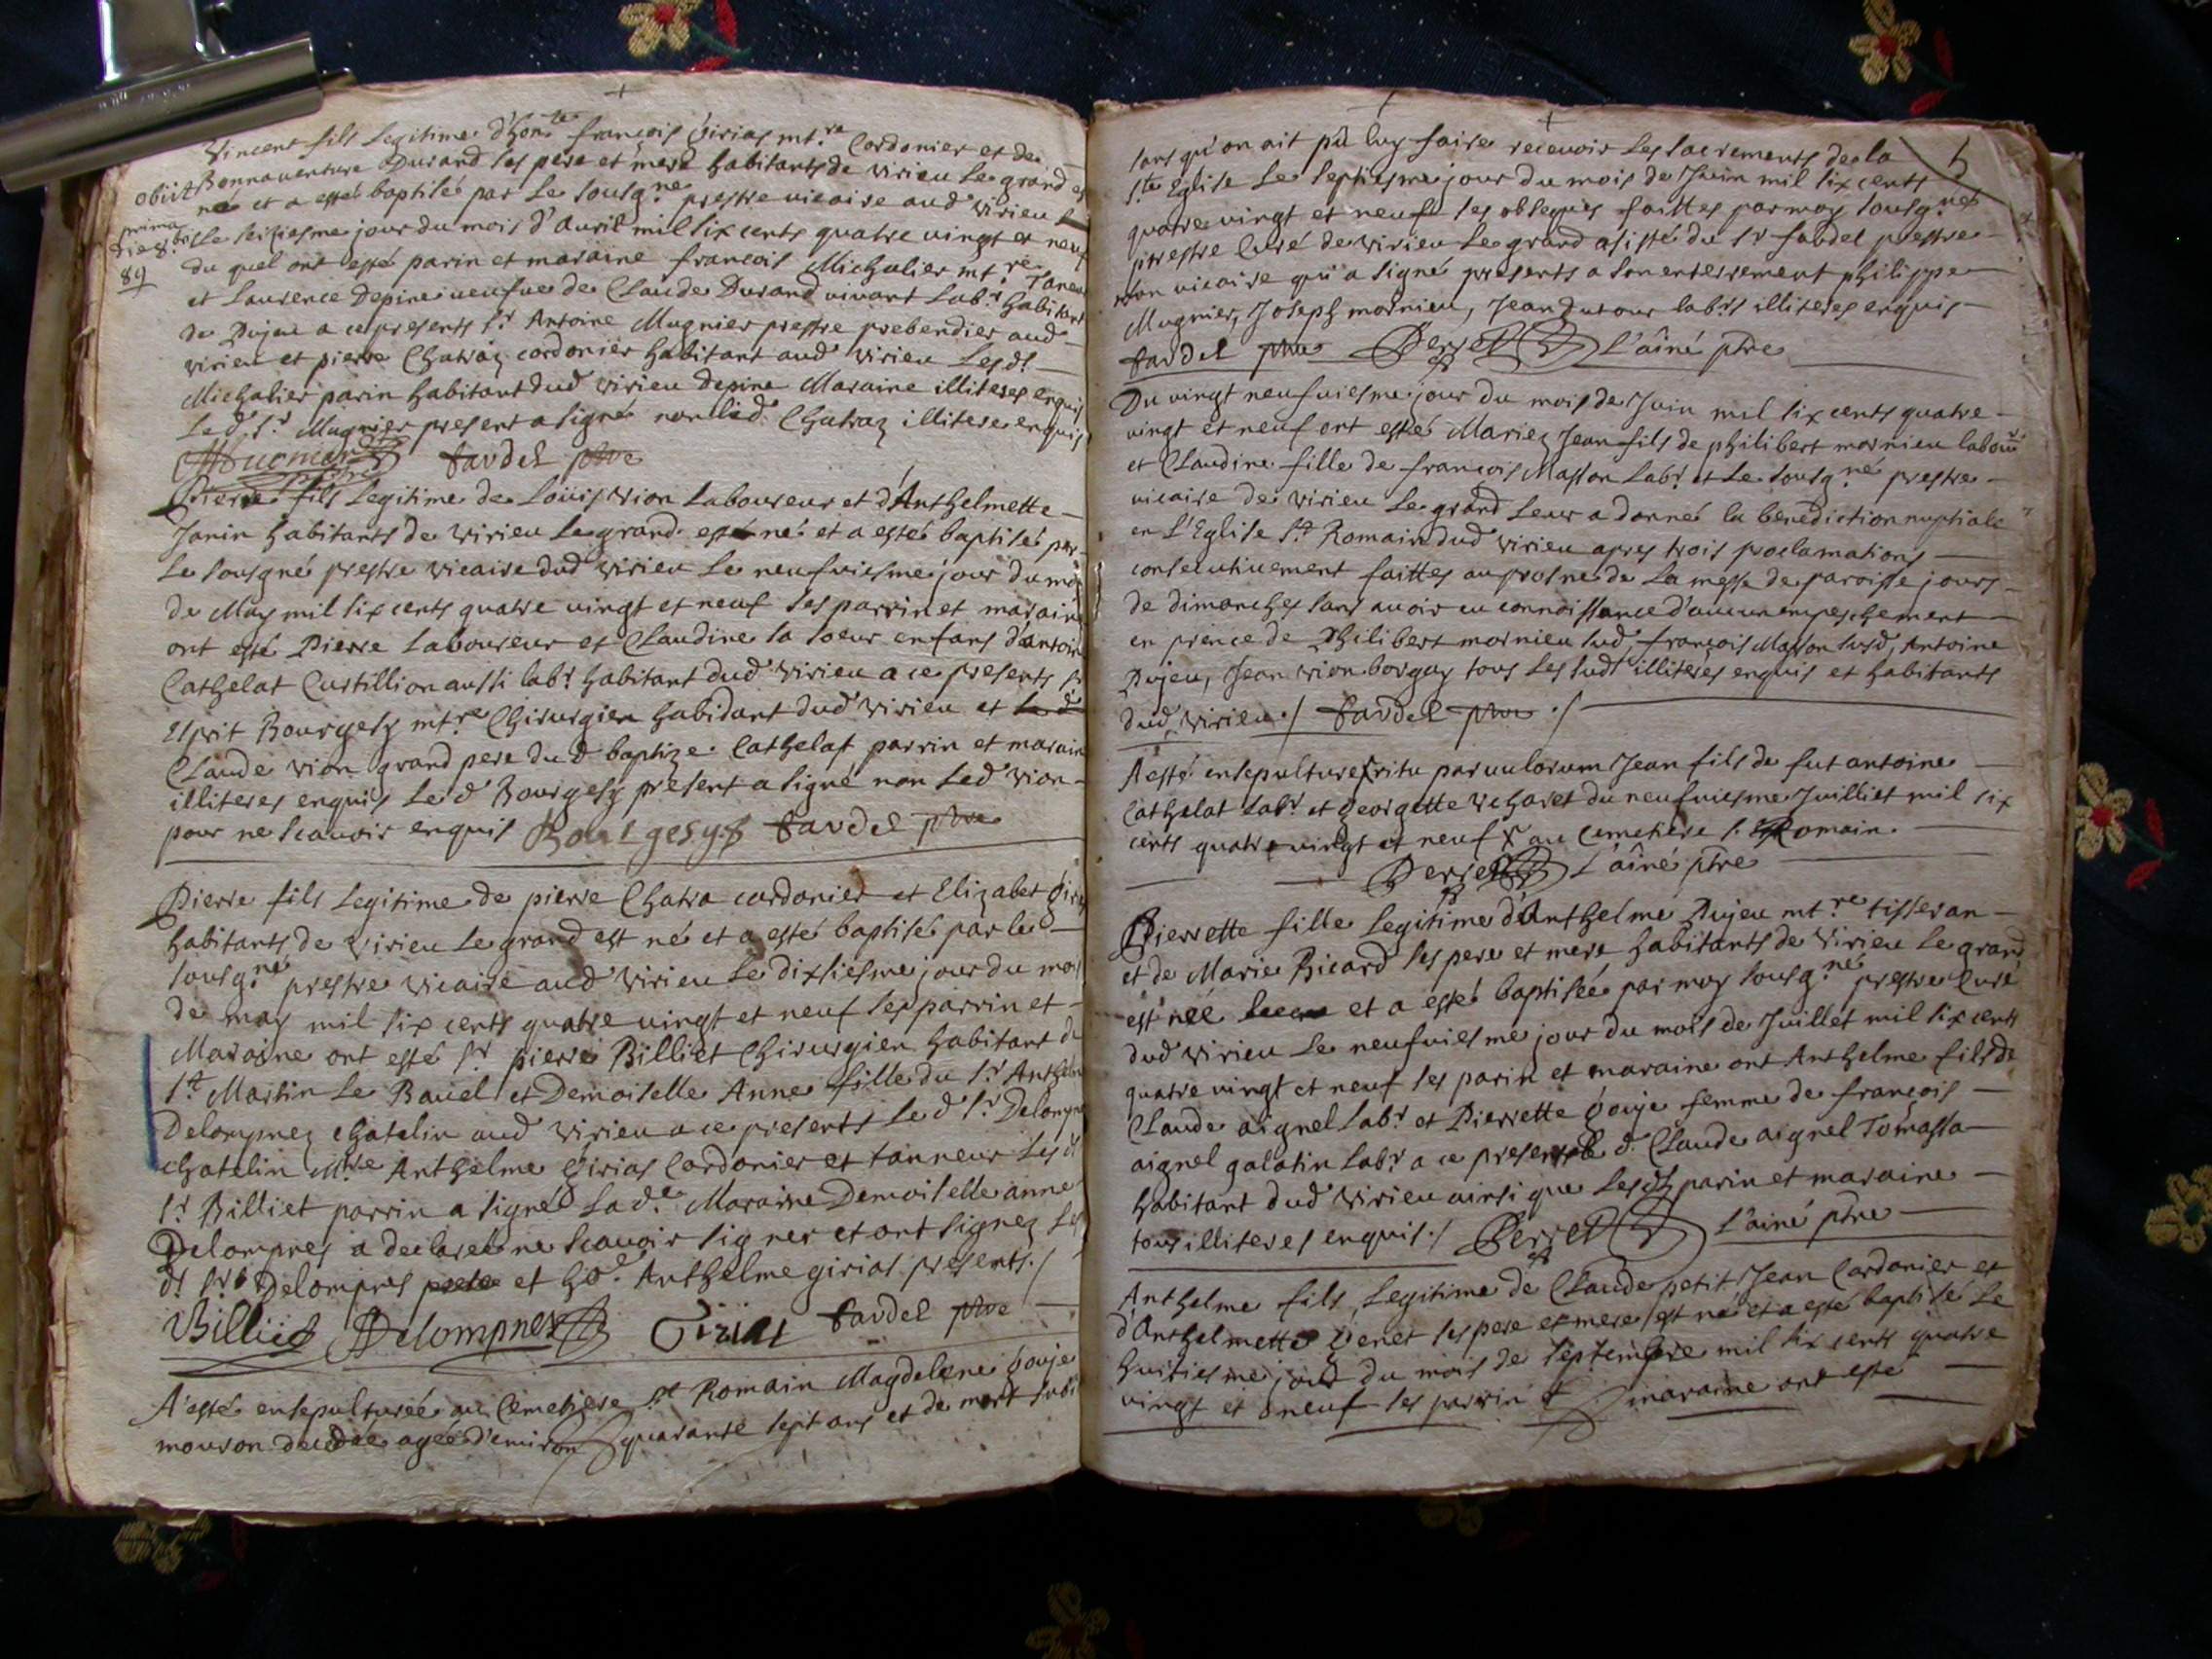 Vincent fils legitime d'honte françois Girias mtre Cordonier et de
Bonnauenture Durand ses pere et mere habitants de virieu le grand est
né et a esté baptisé par le sousgné prestre vicaire aud virieu
obiit
prima
die 8bris
89
le seiziesme jour du mois d'auril mil six cents quatre vingt et neuf
du quel ont esté parin et maraine francois Michalier mtre Taneur
et Laurence Depine ueufue de Claude Durand viuant labr habitant
de Pujeu a ce presents sr Antoine Mugnier prestre prebendier aud
virieu et pierre Chatraz cordonier habitant aud virieu les dt
Michalier parin habitant dud virieu depine Maraine illiteres enquis
Led sr Mugnier present a signé non led. Chatraz illitere enquis
fardel ptre
Pierre fils legitime de Loüis vion laboureur et d'Anthelmette
Janin habitants de virieu le grand est né et a esté baptisé par
le sousgné prestre vicaire dud virieu le neufuiesme jour du mois
de May mil six cents quatre vingt et neuf ses parrin et maraine
ont esté Pierre laboureur et Claudine sa soeur enfans d'antoine
Cathelat Custillion aussi labr habitant dud virieu a ce presents sr
Esprit Bourgesy mtre Chirurgien habidant dud virieu et
Claude vion grand pere du d baptize Cathelat parrin et maraine
illiteres enquis Le d Bourgesy present a signé non led vion
pour ne scauoir enquis Bourgesy fardel ptre
Pierre fils legitime de pierre Chatra cordonier et Elizabet
habitants de virieu le grand est né et a esté baptisé par le
sousgné prestre vicaire aud virieu le dixsiesme jour du mois
de may mil six cents quatre vingt et neuf ses parrin et
Maraine ont esté sr pierre Billiet Chirurgien habitant de
st Martin le Bauel et Demoiselle Anne fille du sr Anthelme
Delompnez chatelin aud virieu a ce presents Le d sr Delompnes
chatelin Mtre Anthelme Girias Cordonier et tanneur les dt
sr Billiet parrin a signé la de Maraine Demoiselle anne
Delompnes a declaré ne scauoir signer et ont signez les
dt srs Delompnes et hole Anthelme girias presents./
Billiet Delompnes Girias fardel ptre
A esté ensepulturée au Cemetiere st Romain Magdelene gouje
mouron decedée agée d'enuiron quarante sept ans et de mort subite
5
sans qu'on ait pû luy faire receuoir les sacrements de la
ste Eglise le septiesme jour du mois de Juin mil six cents
quatre vingt et neuf ses obseques faittes par moy sousgné
prestre Curé de virieu le grand asisté du sr fardel prestre
mon vicaire qui a signé presents a son enterrement philippe
Mugnier, Joseph mornieu, Jean Dutour labrs illiteres enquis
fardel ptre Perret L'aîné ptre
Du vingt neufuiesme jour du mois de Juin mil six cents quatre
vingt et neuf ont esté Mariez Jean fils de philibert mornieu labour
et Claudine fille de francois Masson labr et le sousgné prestre
vicaire de virieu le grand leur a donné la benediction nuptiale
en l'Eglise st Romain dud virieu apres trois proclamations
consecutiuement faittes au prosne de la messe de paroisse jours
de dimanches sans auoir eu connoissance d'aucun empeschement
en prence de Philibert mornieu sud, françois Masson susd, Antoine
Pujeu, Jean vion borgay tous les sudt illiteres enquis et habitants
dud virieu./ fardel ptre ./
A esté ensepulturé ritu paruulorum Jean fils de fut antoine
Cathelat labr et georgette Ucharet du neufuiesme Juilliet mil six
cents quatre vingt et neuf au Cemetiere s. Romain.
Perret L'aîné ptre
Pierrette fille legitime d'Anthelme Pujeu mtre tisseran
et de Marie Ricard ses pere et mere habitants de virieu le grand
est née et a esté baptisée par moy sousgné prestre Curé
dud virieu le neufuiesme jour du mois de Juillet mil six cents
quatre vingt et neuf ses parin et maraine ont Anthelme fils de
Claude aignel labr et Pierrette gouje femme de françois
aignel galatin labr a ce present le d. Claude aignel Tomassa
habitant dud virieu ainsi que les dt parin et maraine
tous illiteres enquis./ Perret L'ainé ptre
Anthelme fils legitime de Claude petit Jean Cordonier et
d'Anthelmette Venet ses pere et mere est né et a esté baptisé le
huitiesme jour du mois de septembre mil six cents quatre
vingt et neuf ses parrin et maraine ont esté